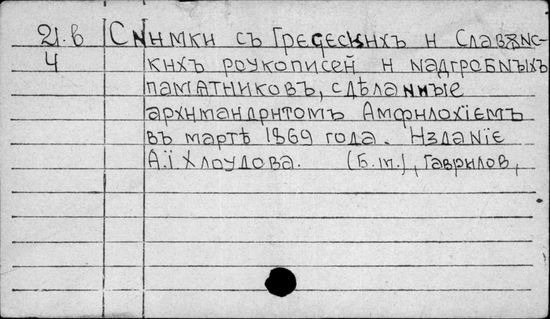 21.в Снимки съ Гречески́хъ и Славѫнс-
4 кихъ роукописей и надгробныхъ
памѧтниковъ, сдѣланные
архимандритомъ Амфилохіемъ
въ мартѣ 1869 года. Изданіе
А.ї Хлоудова. (Б.т.), Гаврилов,